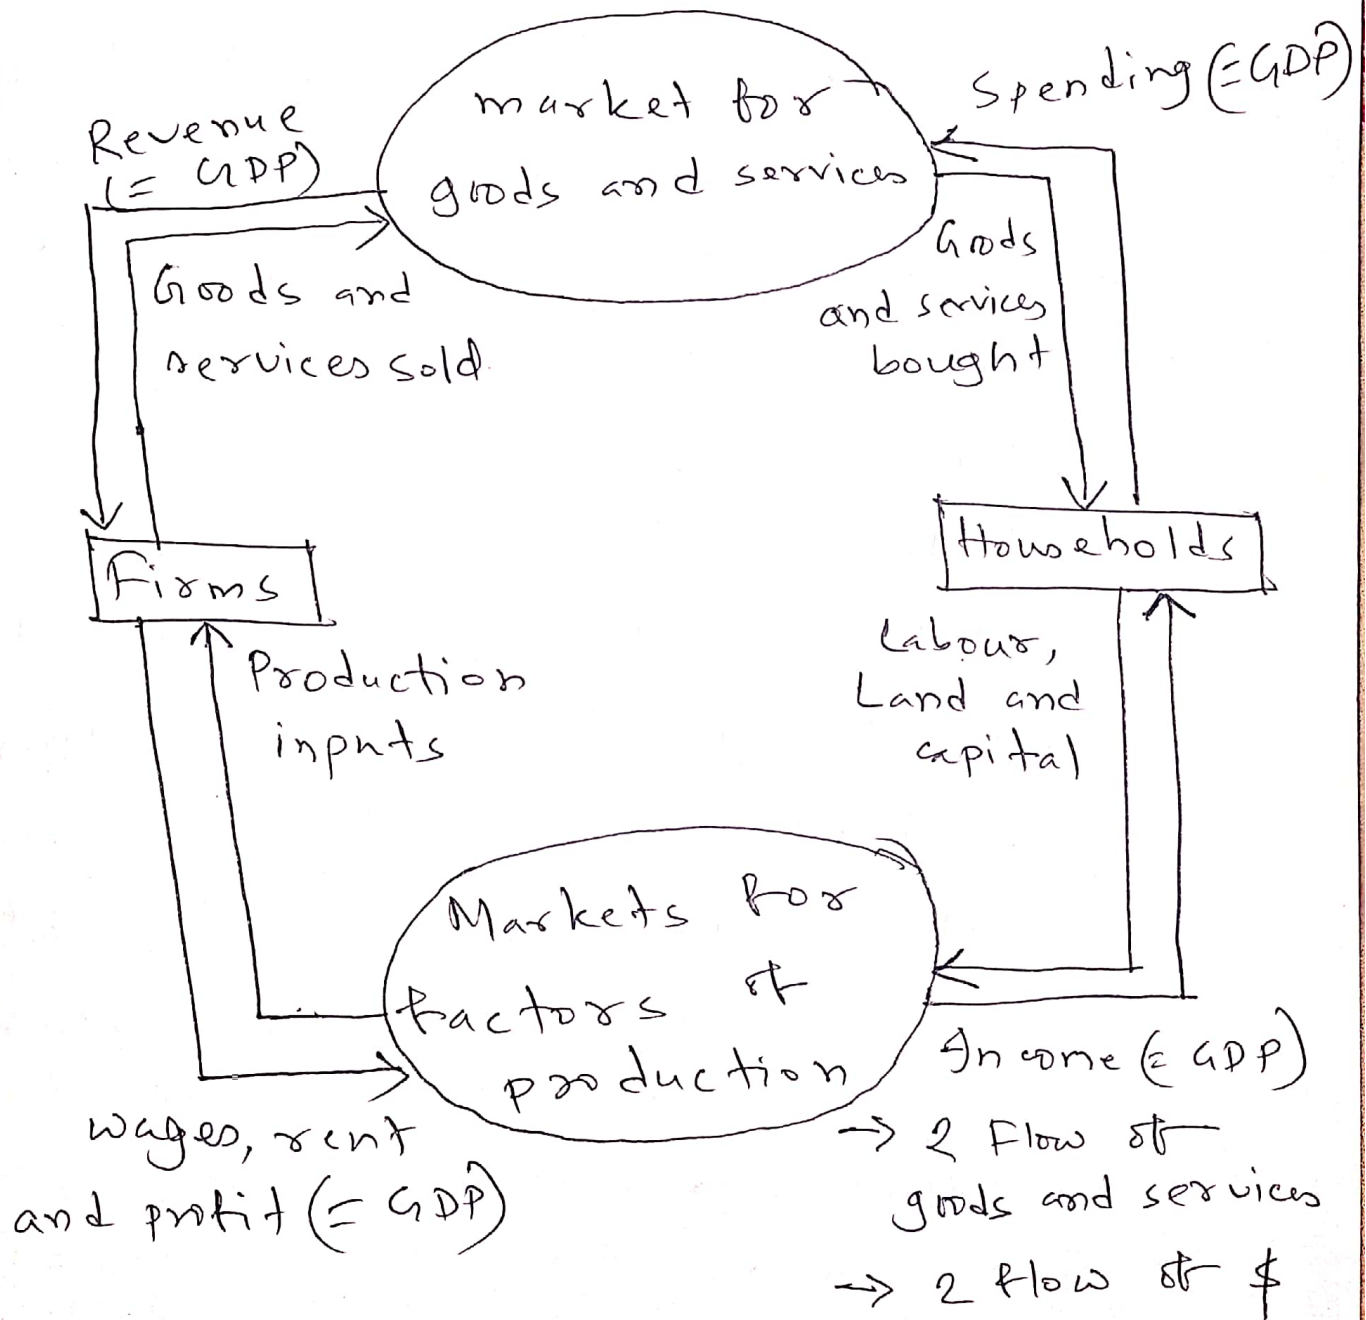 market for
goods and services
Spending (=GDP)
Revenue
(= GDP)
Goods and
services sold
Goods
and services
bought
Firms
Households
Production
inputs
Labour,
Land and
capital
Markets for
factors of
production
Income (= GDP)
wages, rent
and profit (= GDP)
→ 2 Flow of
goods and services
→ 2 flow of $